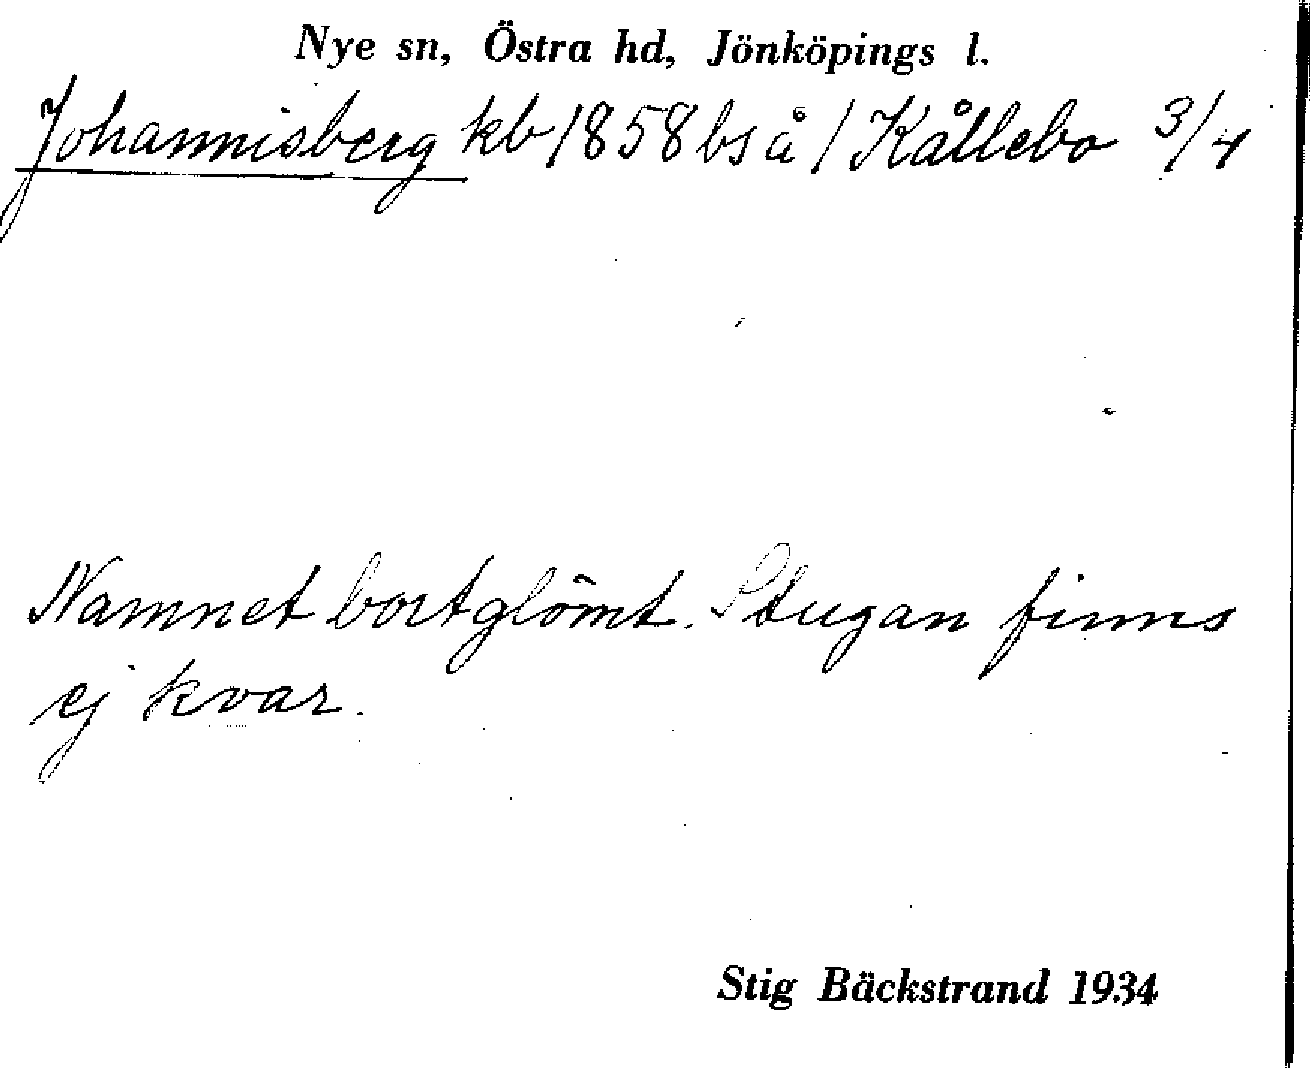 Nye sn, Östra hd, Jönköpings l.
Johannisberg kb 1858 bs å / Kållebo 3/4
Namnet bortglömt. Stugan finns
ej kvar.
Stig Bäckstrand 1934